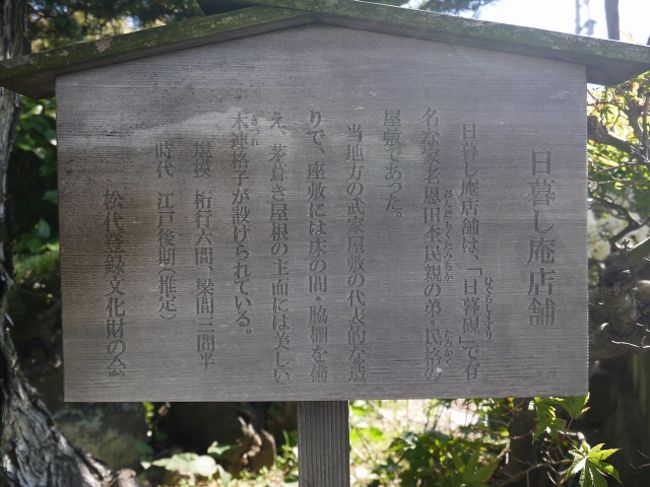 日暮し庵店舗
日暮し庵店舗は、「日暮硯」で有
ひぐらしすずり
名な家老恩田杢民親の弟・民格の
おんだもくたみちか
たみかく
屋敷であった。
当地方の武家屋敷の代表的な造
りで、座敷には床の間・脇棚を備
え、茅葺き屋根の主面には美しい
木連格子が設けられている。
きつれ
規模 桁行六間、梁間三間半
時代 江戸後期(推定)
松代登録文化財の会